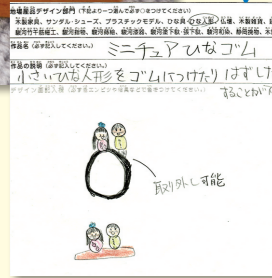 地場産品デザイン部門（下記より一つ選んで必ず○をつけてください）
木製家具、サンダル・シューズ、プラスチックモデル、ひな具・ひな人形、仏壇、木製雑貨、
駿河竹千筋細工、駿河雛人形、駿河蒔絵、駿河漆器、駿河塗下駄・張下駄、駿河和染、静岡挽物、木
作品名（必ず記入してください。） ミニチュアひなゴム
作品の説明（必ず記入してください。）
小さいひな人形をゴムにつけたりはずした
することが
取り外し可能